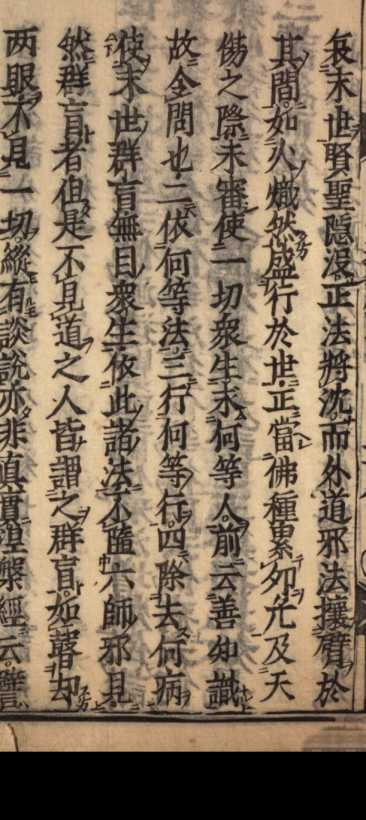 衰末世賢聖隱沒正法將沈而外道邪法攘臂於
其間如火熾然盛行於世正當佛種累卵九及天
傷之際未審使一切衆生求何等人前云善知識
故全問也二依何等法三行何等行四除去何病
使末世群盲無目衆生依此諸法不隨六師邪見
然群盲者但是不見道之人皆謂之群盲如瞽却
两眼不見一切縱有談説亦非真實涅槃經云譬